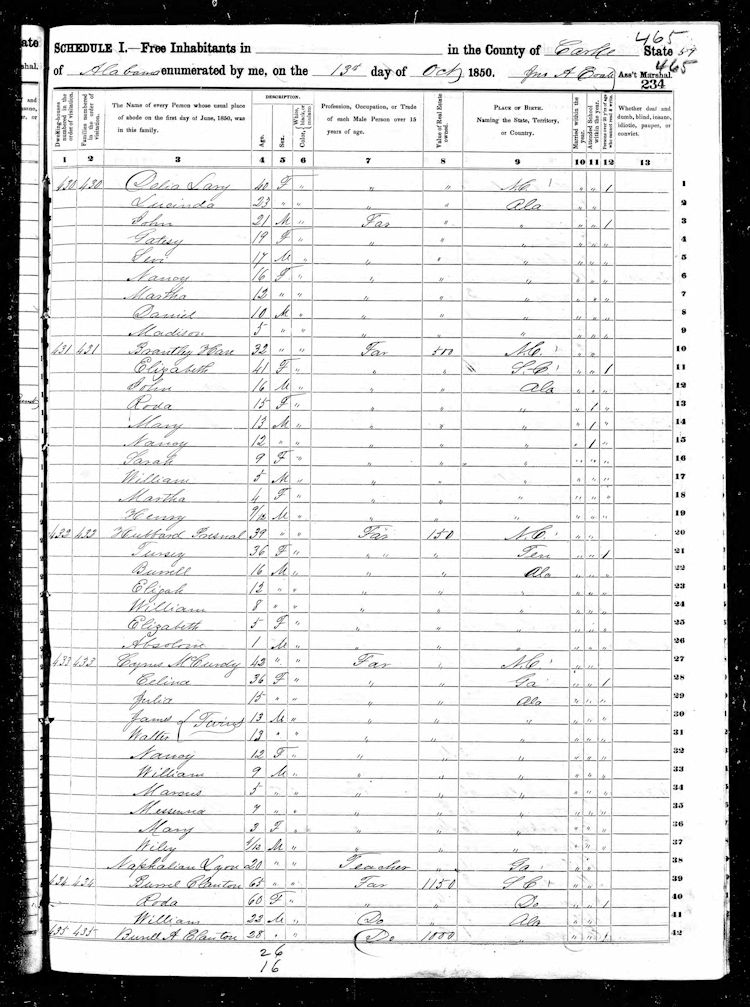 465
SCHEDULE I.—Free Inhabitants in in the County of Carke State
of Alabama enumerated by me, on the 13th day of Oct 1850. Jno A Ass't Marshal.
465
234
Dwelling-houses numbered in the order of visitation.
Families numbered in the order of visitation.
The Name of every Person whose usual place of abode on the first day of June, 1850, was in this family.
DESCRIPTION.
Age.
Sex.
Color, White, black, or mulatto.
Profession, Occupation, or Trade of each Male Person over 15 years of age.
Value of Real Estate owned.
PLACE OF BIRTH. Naming the State, Territory, or Country.
Married within the year.
Attended School within the year.
Persons over 20 y'rs of age who cannot read & write.
Whether deaf and dumb, blind, insane, idiotic, pauper, or convict.
1 2 3 4 5 6 7 8 9 10 11 12 13
430 430 Delia Lary 40 F " " " N.C. " " 1 1
Lucinda 23 " " " " Ala " " 2
John 21 M " Far " " " " 1 3
Gatesy 19 F " " " " " " " 4
Levi 17 M " " " " " " " 5
Nancy 16 F " " " " " " " 6
Martha 12 " " " " " " " " 7
Daniel 10 M " " " " " " " 8
Madison 5 " " " " " " " " 9
431 431 Branthy Hare 32 " " Far 500 N.C. " " 10
Elizabeth 41 F " " " S.C. " " 1 11
John 16 M " " " Ala " " " 12
Roda 15 F " " " " " 1 " 13
Mary 13 M " " " " " 1 " 14
Nancy 12 " " " " " " 1 " 15
Sarah 9 F " " " " " " " 16
William 5 M " " " " " " " 17
Martha 4 F " " " " " " " 18
Henry 9/12 M " " " " " " " 19
432 432 Hubbard Fresnal 39 " " Far 150 N.C. " " " 20
Tursey 36 F " " " Ten " " 1 21
Burrell 16 M " " " Ala " " " 22
Elijah 12 " " " " " " " " 23
William 8 " " " " " " " " 24
Elizabeth 5 F " " " " " " " 25
Absolom 1 M " " " " " " " 26
433 433 Cyrus McCurdy 42 " " Far " N.C. " " 27
Celina 36 F " " " Ga " " 1 28
Julia 15 " " " " Ala " " " 29
James (Twins) 13 M " " " " " " " 30
Walter 13 " " " " " " " " 31
Nancy 12 F " " " " " " " 32
William 9 M " " " " " " " 33
Marcus 5 " " " " " " " " 34
7 " " " " " " " " 35
Mary 3 F " " " " " " " 36
Wiley /12 M " " " " " " " 37
Naphalian Lyon 20 " " Teacher " Ga " " " 38
434 434 Burrel Clanton 65 " " Far 1150 S.C. " " " 39
Roda 60 F " " " Do " " 1 40
William 22 M " Do " Ala " " " 41
435 435 Burell A Clanton 28 " " Do 1000 " " " 1 42
26
16